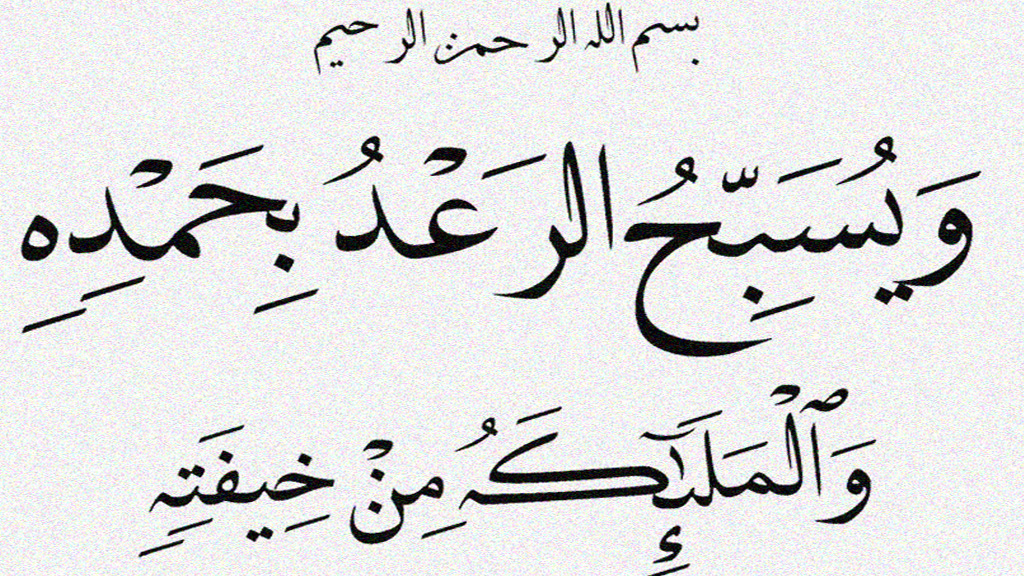 بسم الله الرحمن الرحيم
وَيُسَبِّحُ الرَعْدُ بِحَمْدِهِ
وَٱلْمَلَـٰٓئِكَةُ مِنْ خِيفَتِهِ